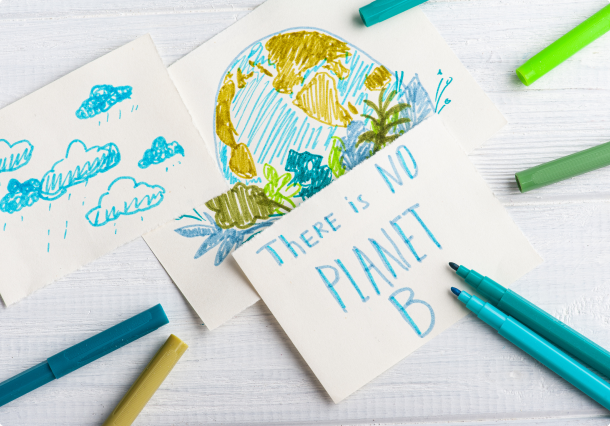 THERE is NO
PLANET
B